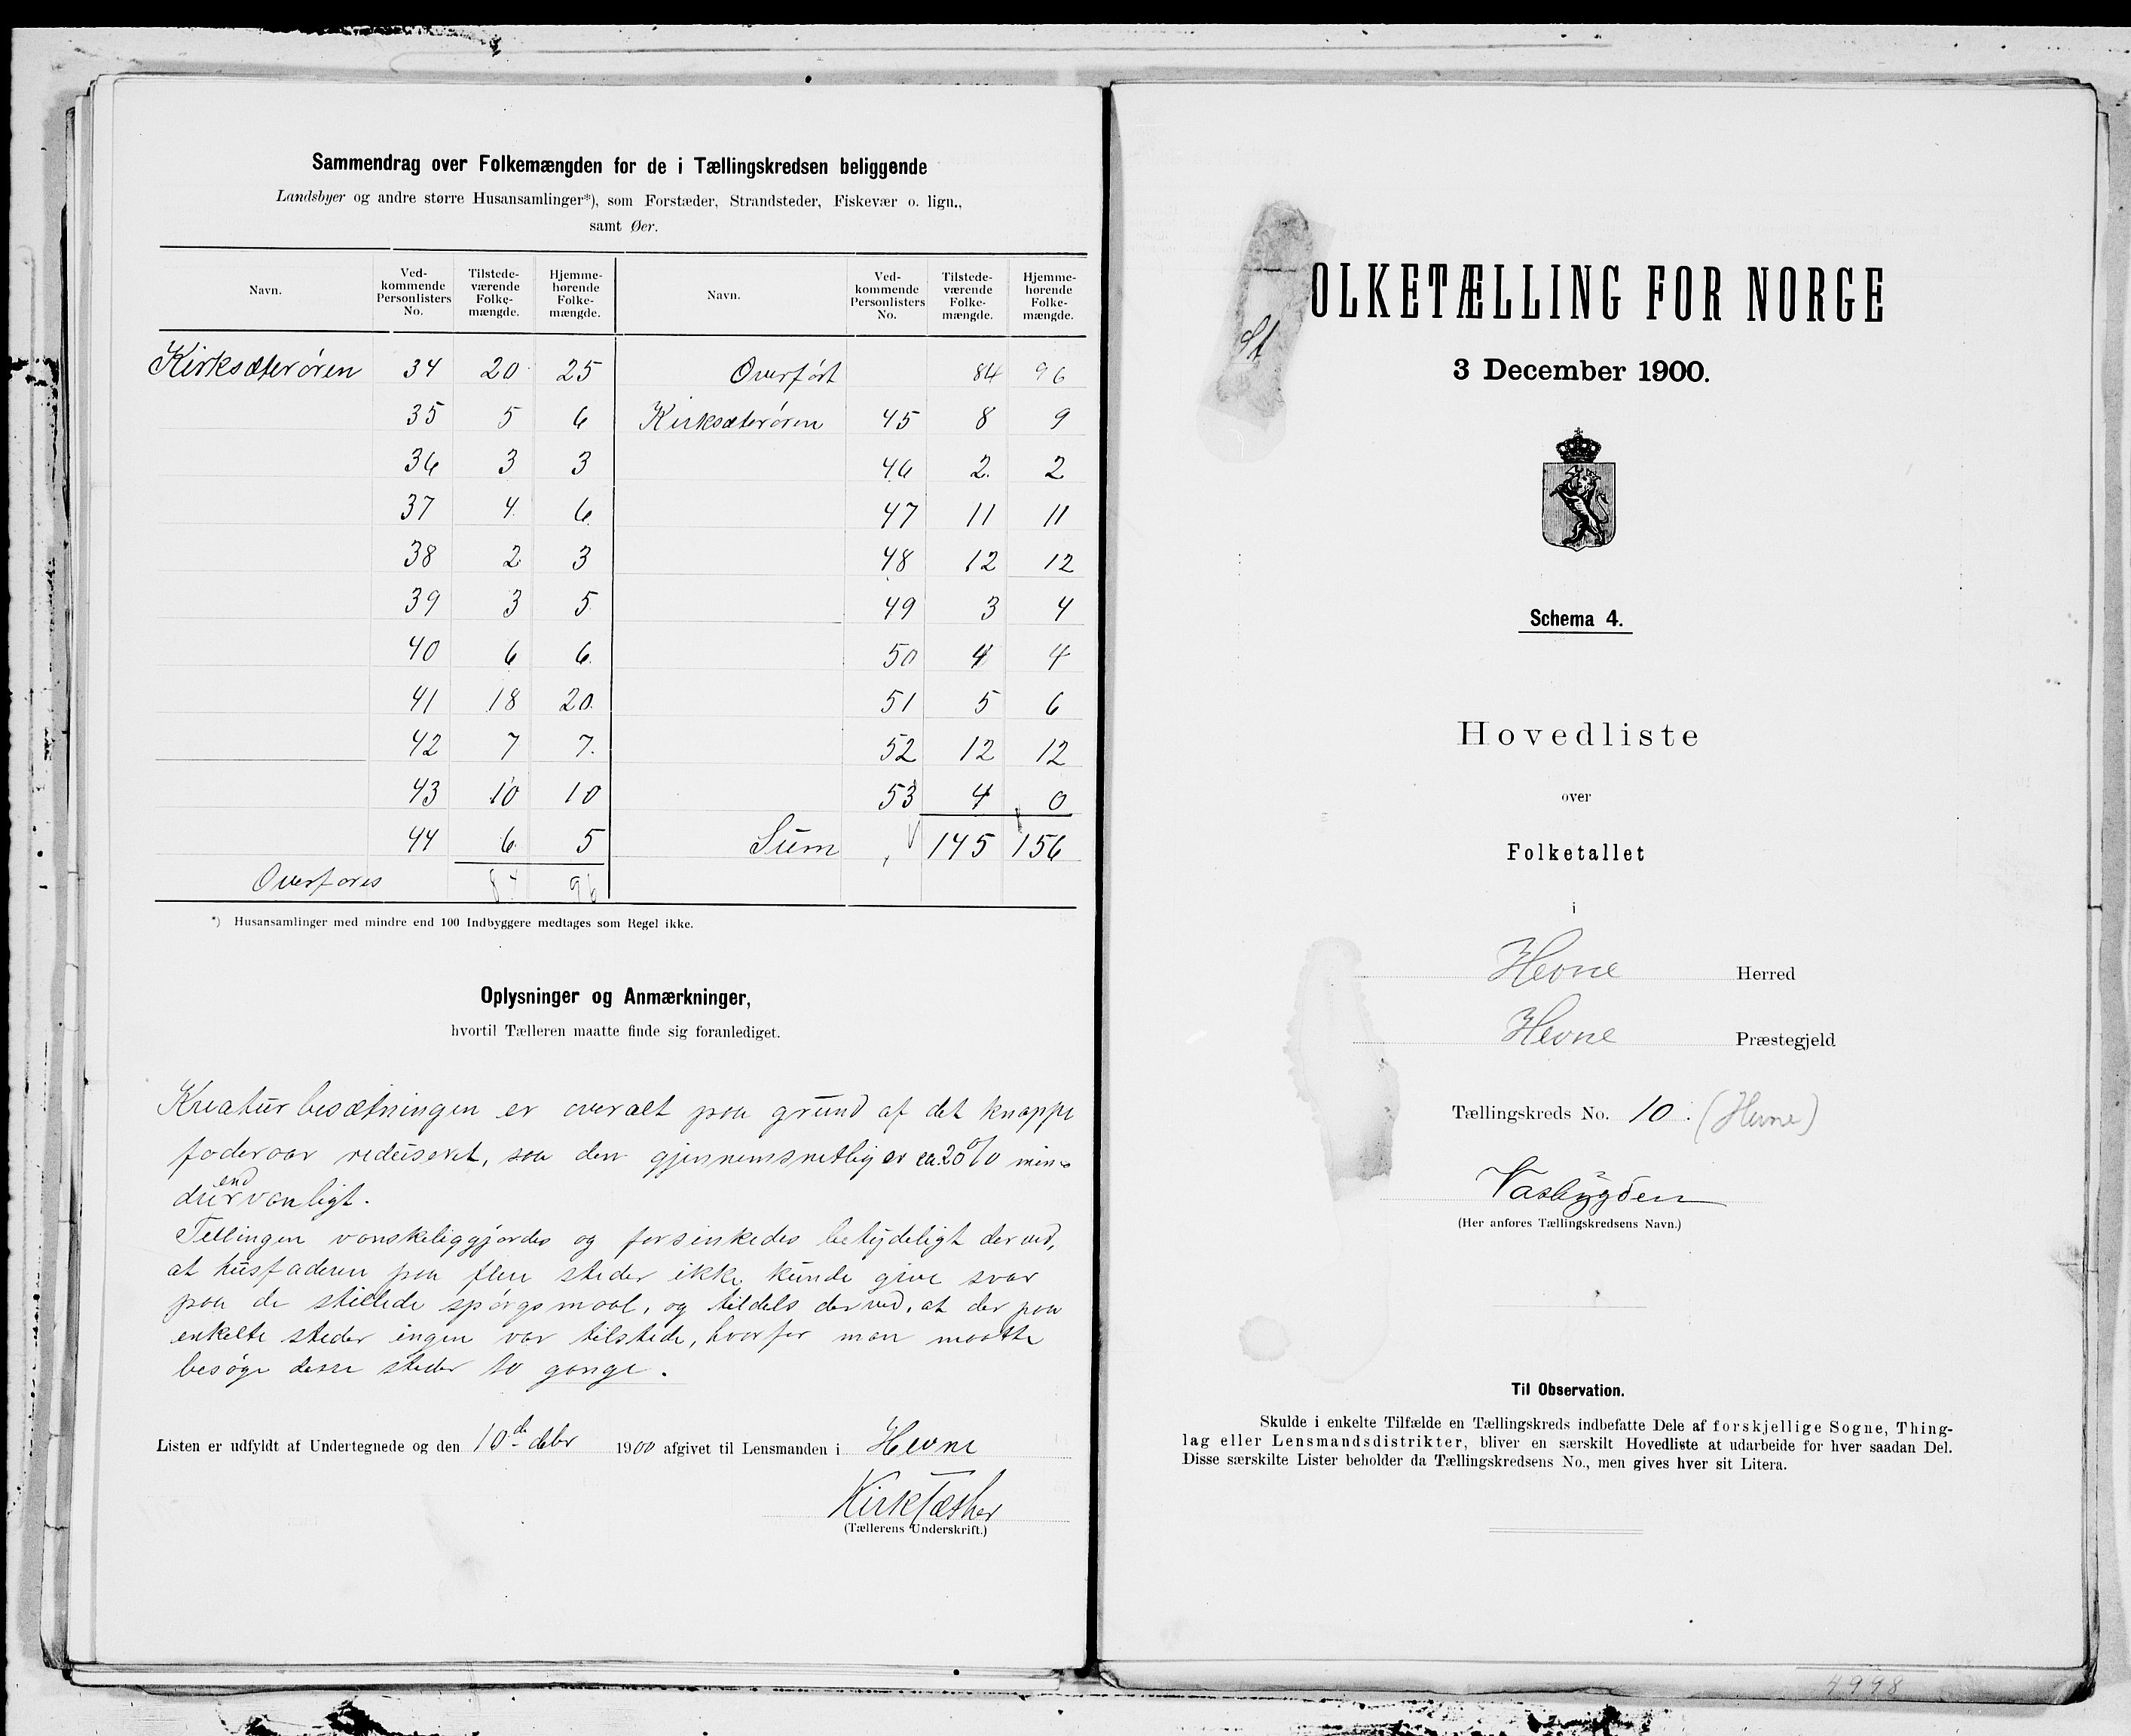 Sammendrag over Folkemængden for de i Tællingskredsen beliggende
Landsbyer og andre større Husansamlinger*), som Forstæder, Strandsteder, Fiskevær o. lign.,
samt Øer.
Navn. Ved-kommende Personlisters No. Tilstede-værende Folke-mængde. Hjemme-hørende Folke-mængde. Navn. Ved-kommende Personlisters No. Tilstede-værende Folke-mængde. Hjemme-hørende Folke-mængde.
Kirksæterøren 34 20 25 Overført 84 96
35 5 6 Kirksæterøren 45 8 9
36 3 3 46 2 2
37 4 6 47 11 11
38 2 3 48 12 12
39 3 5 49 3 4
40 6 6 50 4 4
41 18 20 51 5 6
42 7 7 52 12 12
43 10 10 53 4 0
44 6 5 Sum 145 156
Overføres 84 96
*) Husansamlinger med mindre end 100 Indbyggere medtages som Regel ikke.
Oplysninger og Anmærkninger,
hvortil Tælleren maatte finde sig foranlediget.
Kreaturbesætningen er overalt paa grund af det knappe
foderaar reduseret, saa den gjennemsnetlig er ca. 20 % min-
dre end vanligt.
Tellingen vanskeliggjordes og forsinkedes betydeligt derved,
at husfaderen paa flere steder ikke kunde give svar
paa de stillede spørgsmaal, og tildels derved, at der paa
enkelte steder ingen var tilstede, hvorfor man maatte
besøge desse steder to gange.
Listen er udfyldt af Undertegnede og den 10de debr 1900 afgivet til Lensmanden i Hevne
(Tællerens Underskrift.)
OLKETÆLLING FOR NORGE
3 December 1900.
Schema 4.
Hovedliste
over
Folketallet
i
Hevne Herred
Hevne Præstegjeld
Tællingskreds No. 10. (Hevne)
Vasbygden
(Her anføres Tællingskredsens Navn.)
Til Observation.
Skulde i enkelte Tilfælde en Tællingskreds indbefatte Dele af forskjellige Sogne, Thing-
lag eller Lensmandsdistrikter, bliver en særskilt Hovedliste at udarbeide for hver saadan Del.
Disse særskilte Lister beholder da Tællingskredsens No., men gives hver sit Litera.
4998